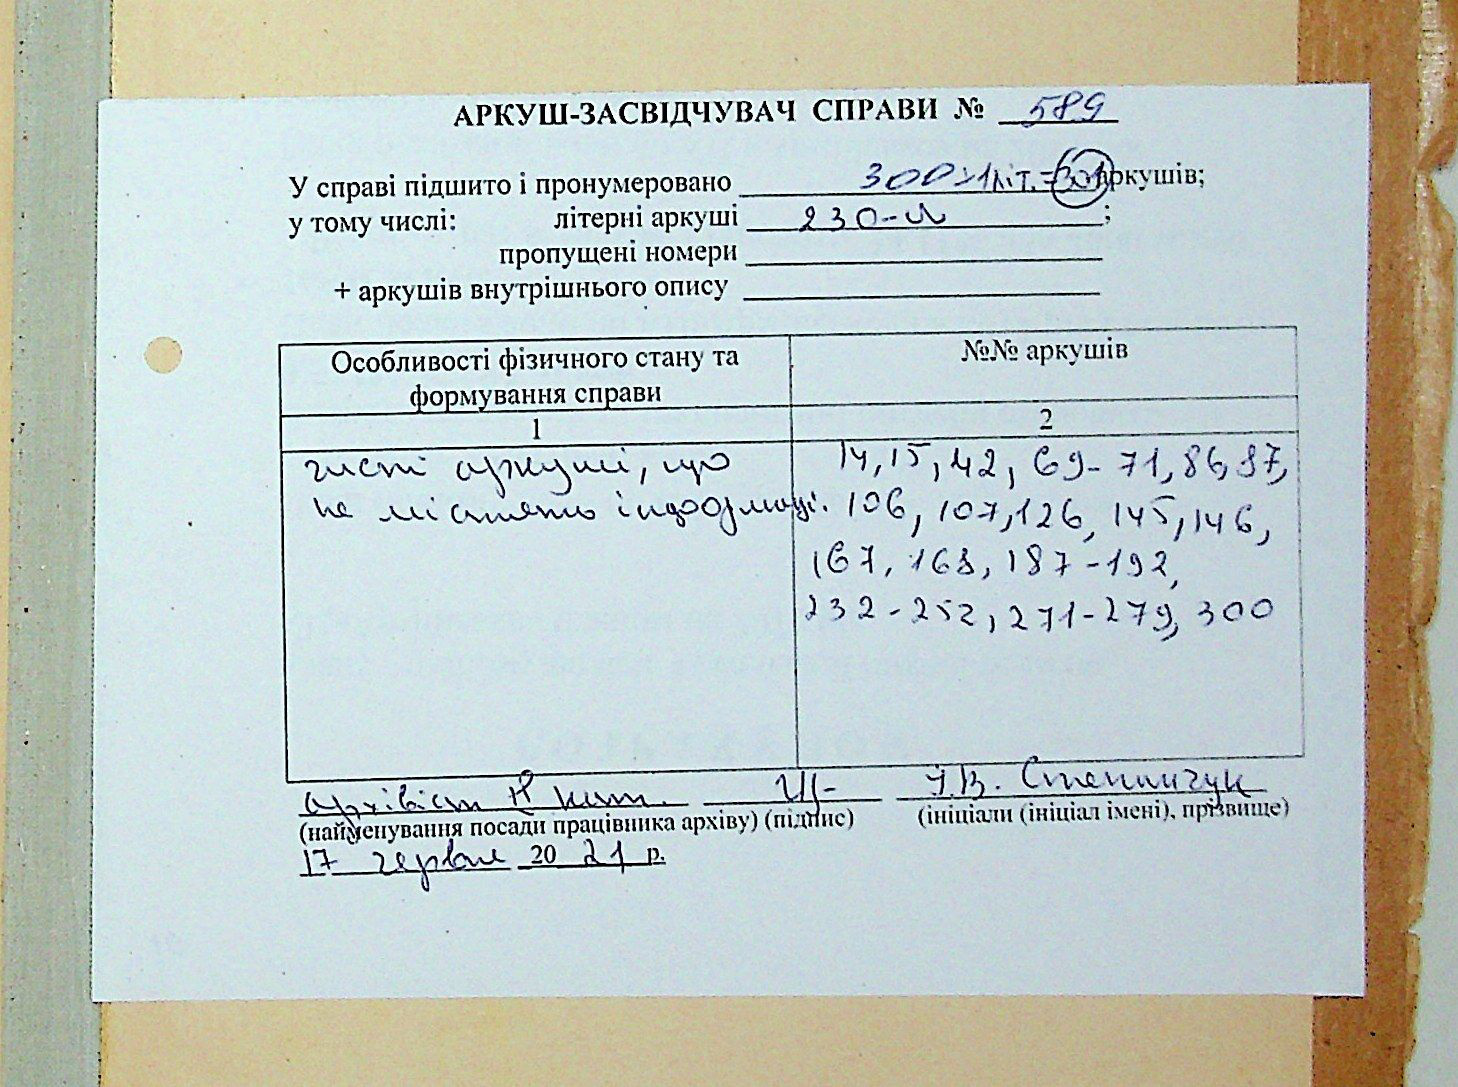 АРКУШ-ЗАСВІДЧУВАЧ СПРАВИ № 589
У справі підшито і пронумеровано 300+1літ.=301 аркушів;
у тому числі: літерні аркуші 230-а ;
пропущені номери
+ аркушів внутрішнього опису
Особливості фізичного стану та формування справи
№№ аркушів
1 2
чисті аркуші, що 14, 15, 42, 69-71, 86, 87,
не містять інформації. 106, 107, 126, 145, 146,
167, 168, 187-192,
232-252, 271-279, 300
архівіст ІІ кат. І.В. Степанчук
(найменування посади працівника архіву) (підпис) (ініціали (ініціал імені), прізвище)
17 червня 2021 р.